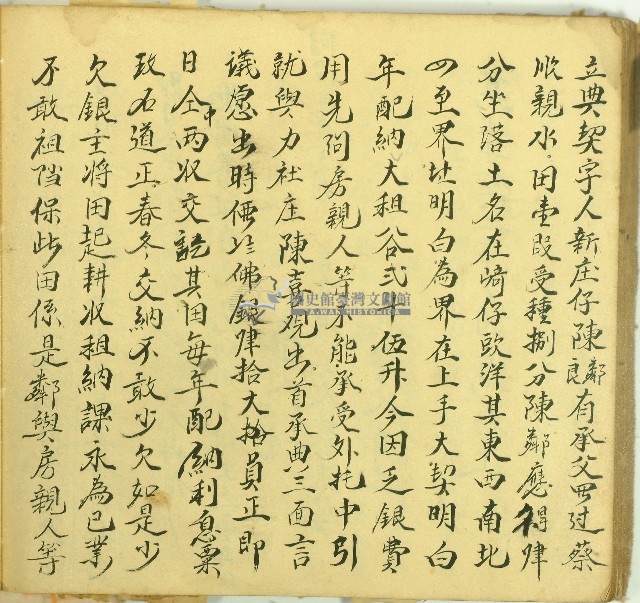 立典契字人新庄仔陳鄰良有承父買过蔡
欣親水田壹段受種捌分陳鄰應得肆
分坐落土名在崎仔㰯洋其東西南北
四至界址明白為界在上手大契明白
年配納大租谷弍斗伍升今因乏銀費
用先问房親人等不能承受外托中引
就與力社庄陳喜观出首承典三面言
議愿出時價佛銀肆拾大員正即
日仝中两收交訖其田每年配納利息粟
玖石道正春冬交納不敢少欠如是少
欠銀主将田起耕收租納課永為己業
不敢祖挡保此田係是鄰與房親人等
國史館臺灣文獻館
TAIWAN HISTORICA